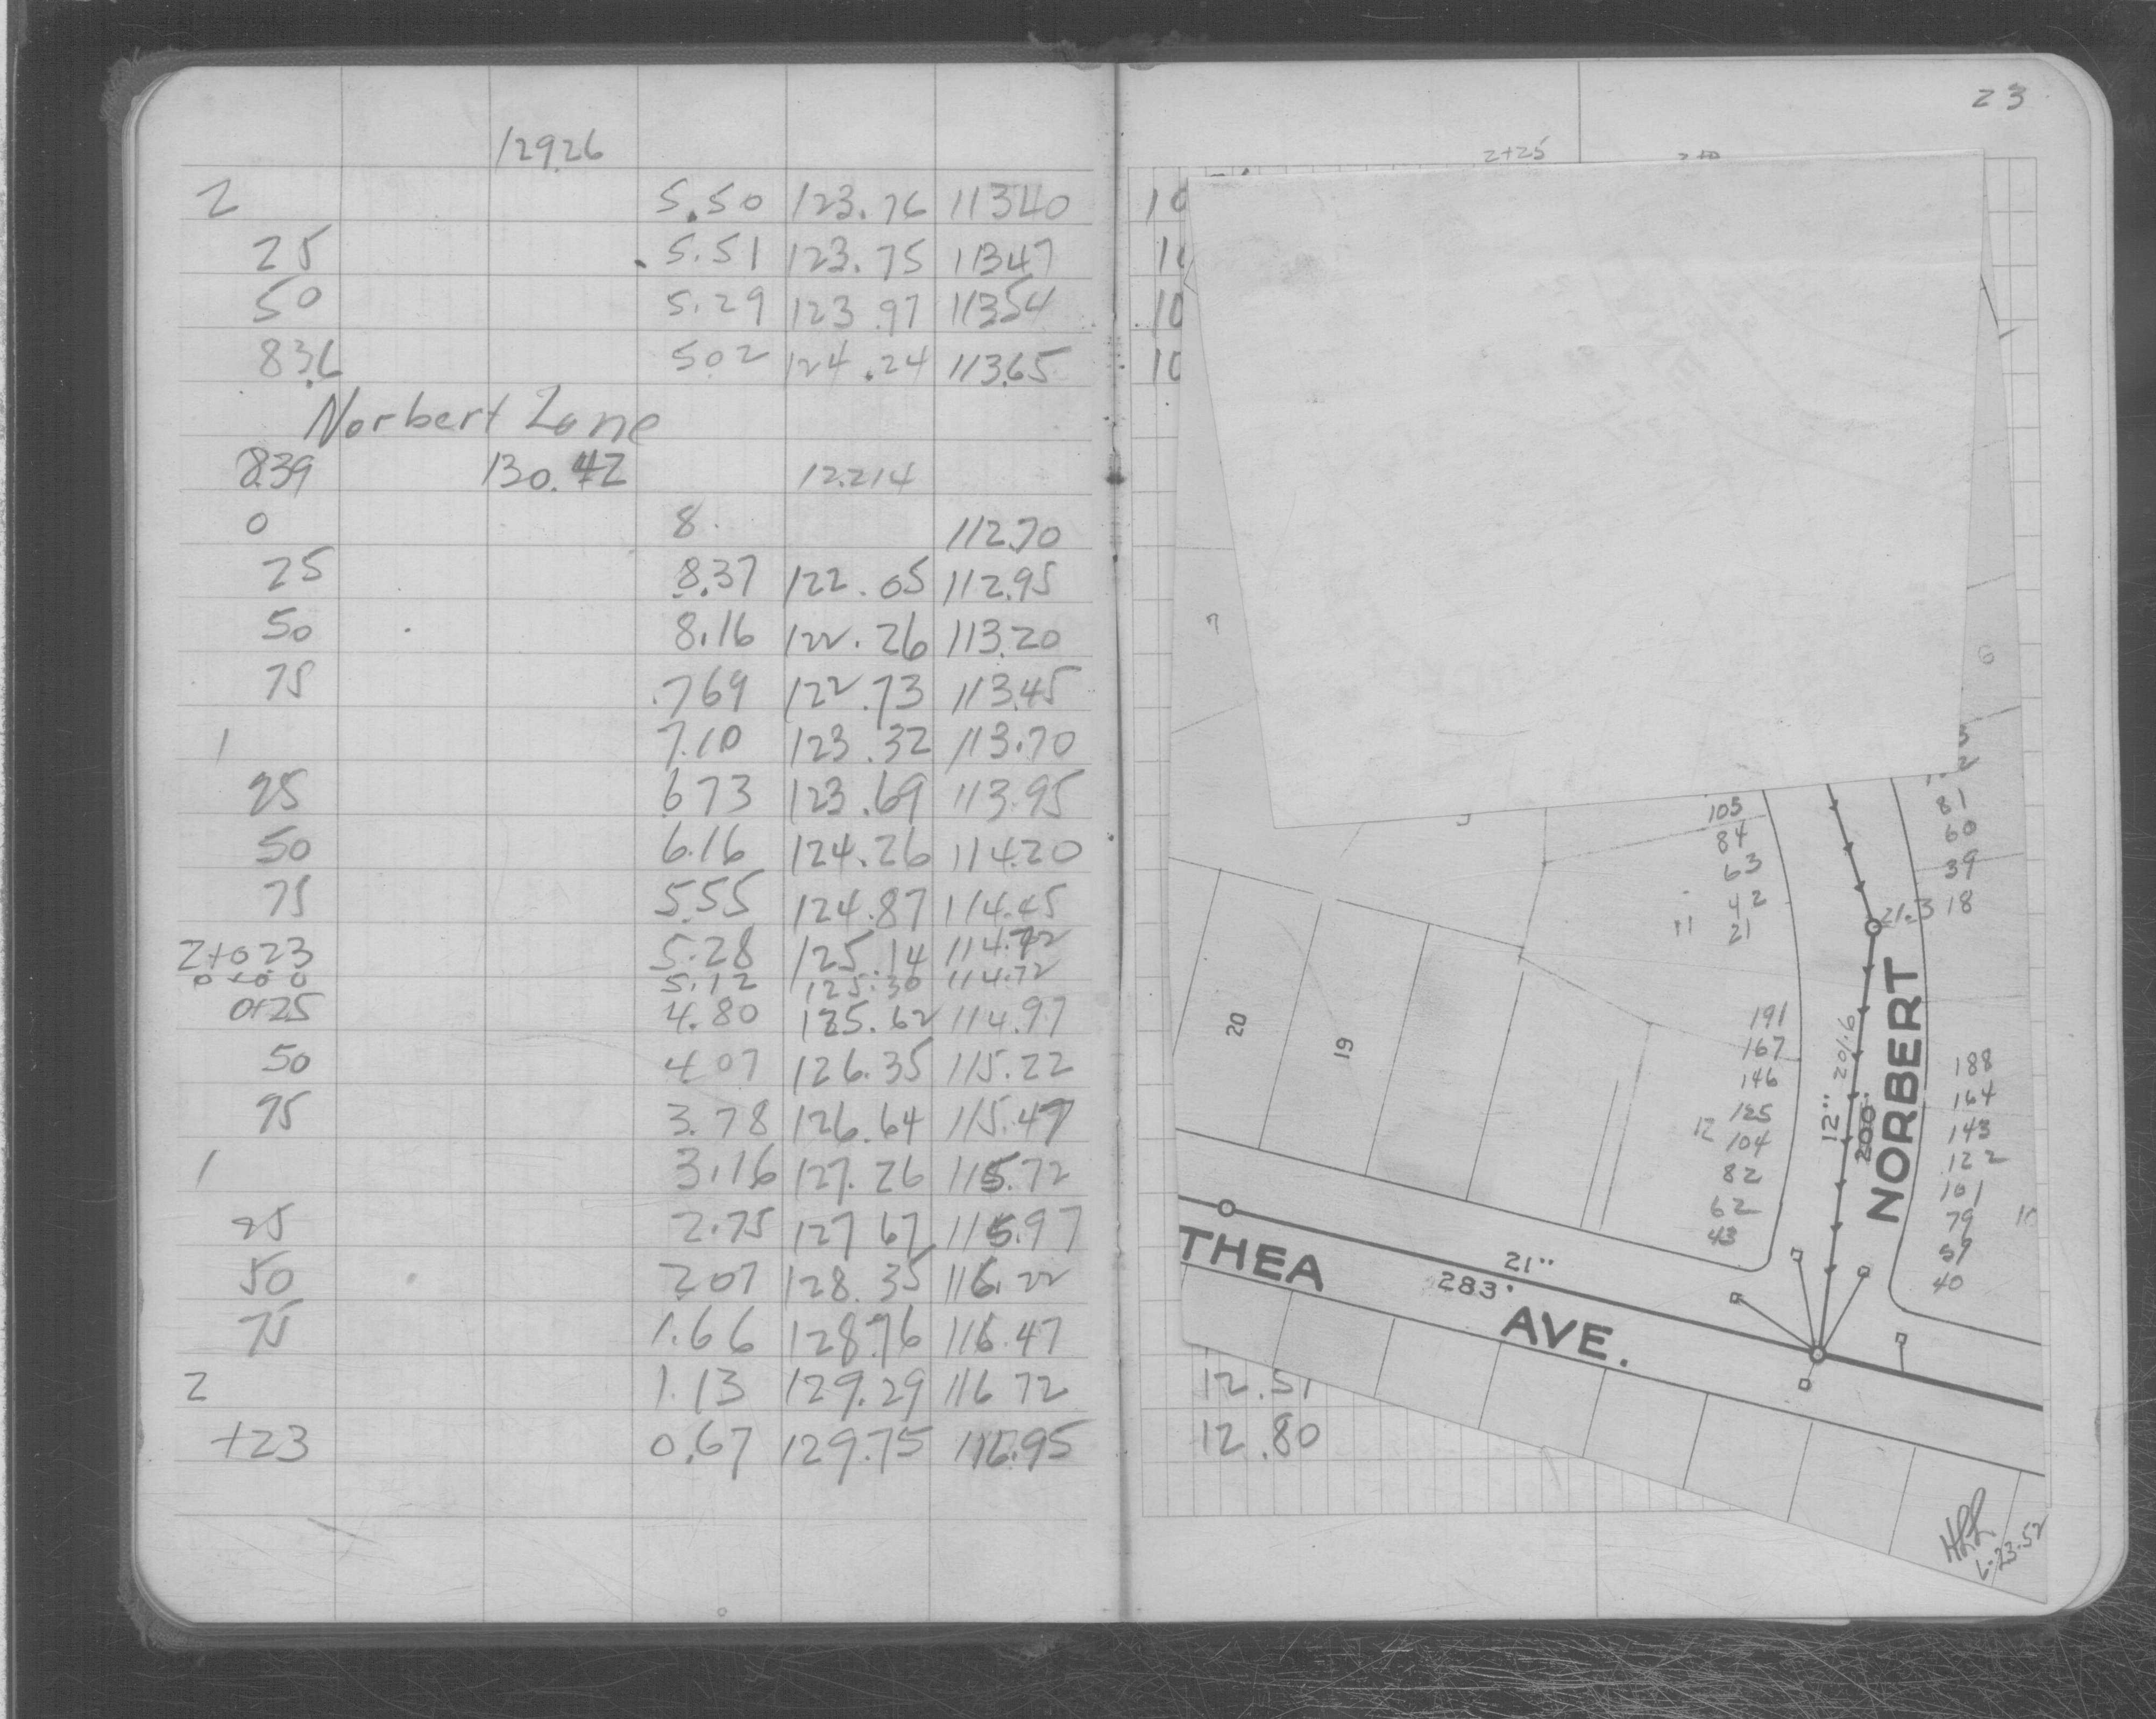 129.26
2 5.50 123.76 113.40
25 5.51 123.75 113.47
50 5.29 123.97 113.54
83.6 5.02 124.24 113.65
Norbert Lane
8.39 130.42 12.214
0 8. 112.70
25 8.37 122.05 112.95
50 8.16 122.26 113.20
75 7.69 122.73 113.45
1 7.10 123.32 113.70
25 6.73 123.69 113.95
50 6.16 124.26 114.20
75 5.55 124.87 114.45
2+023 5.28 125.14 114.72
0+00 5.12 125.30 114.72
0+25 4.80 125.62 114.97
50 4.07 126.35 115.22
75 3.78 126.64 115.47
1 3.16 127.26 115.72
25 2.75 127.67 115.97
50 2.07 128.35 116.22
75 1.66 128.76 116.47
2 1.13 129.29 116.72
+23 0.67 129.75 116.95
23
2+25
10
10
10
7
6
105
84
63
42
11 21
81
60
39
21.3 18
20
19
191
167
146
125
12 104
82
62
43
12" 201.6
200'
NORBERT
188
164
143
122
101
79
59
40
10
THEA AVE.
21"
283'
12.51
12.80
HRR
6-23-52